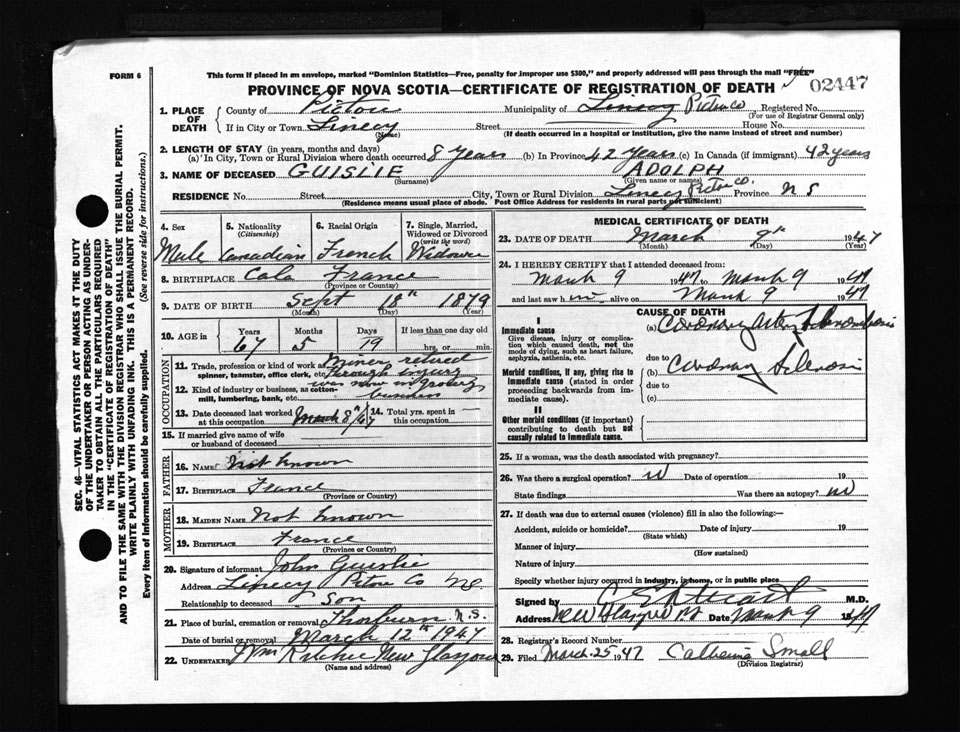 FORM 6
This form if placed in an envelope, marked "Dominion Statistics—Free, penalty for improper use $300," and properly addressed will pass through the mail "FREE"
PROVINCE OF NOVA SCOTIA—CERTIFICATE OF REGISTRATION OF DEATH 02447
1. PLACE OF DEATH County of Pictou Municipality of Linacy Pictou Co Registered No.
(For use of Registrar General only)
If in City or Town Linacy Street House No.
(Name) (If death occurred in a hospital or Institution, give the name instead of street and number)
2. LENGTH OF STAY (in years, months and days)
(a) In City, Town or Rural Division where death occurred 8 years (b) In Province 42 years (c) In Canada (if immigrant) 42 years
3. NAME OF DECEASED GUISLIE ADOLPH
(Surname) (Given name or names)
RESIDENCE No. Street City, Town or Rural Division Linacy Pictou Co. Province N S
(Residence means usual place of abode. Post Office Address for residents in rural parts not sufficient)
4. Sex Male
5. Nationality (Citizenship) Canadian
6. Racial Origin French
7. Single, Married, Widowed or Divorced (write the word) Widower
8. BIRTHPLACE France
(Province or Country)
9. DATE OF BIRTH Sept 18th 1879
(Month) (Day) (Year)
10. AGE in Years 67 Months 5 Days 19 If less than one day old hrs. or min.
OCCUPATION
11. Trade, profession or kind of work as spinner, teamster, office clerk, etc. Miner retired through injury
12. Kind of industry or business, as cotton-mill, lumbering, bank, etc. was now in grocery business
13. Date deceased last worked at this occupation March 8th/47
14. Total yrs. spent in this occupation
15. If married give name of wife or husband of deceased
FATHER
16. NAME Not known
17. BIRTHPLACE France
(Province or Country)
MOTHER
18. MAIDEN NAME Not known
19. BIRTHPLACE France
(Province or Country)
20. Signature of informant John Guislie
Address Linacy Pictou Co NS
Relationship to deceased Son
21. Place of burial, cremation or removal Thorburn N.S.
Date of burial or removal March 12th 1947
22. UNDERTAKER Wm Ritchie New Glasgow
(Name and address)
MEDICAL CERTIFICATE OF DEATH
23. DATE OF DEATH March 9th 1947
(Month) (Day) (Year)
24. I HEREBY CERTIFY that I attended deceased from:
March 9 1947 to March 9 1947
and last saw him alive on March 9 1947
CAUSE OF DEATH
I
Immediate cause
Give disease, injury or complication which caused death, not the mode of dying, such as heart failure, asphyxia, asthenia, etc.
(a) Coronary artery thrombosis
due to
Morbid conditions, if any, giving rise to immediate cause (stated in order proceeding backwards from immediate cause).
(b) Coronary Sclerosis
due to
(c)
II
Other morbid conditions (if important) contributing to death but not causally related to immediate cause.
25. If a woman, was the death associated with pregnancy?
26. Was there a surgical operation? no Date of operation 19
State findings Was there an autopsy? no
27. If death was due to external causes (violence) fill in also the following:—
Accident, suicide or homicide? Date of injury 19
(State which)
Manner of injury
(How sustained)
Nature of injury
Specify whether injury occurred in industry, in home, or in public place
Signed by M.D.
Address New Glasgow N.S. Date March 9 1947
28. Registrar's Record Number
29. Filed March 25 1947 Catherine Small
(Division Registrar)
SEC. 46—VITAL STATISTICS ACT MAKES IT THE DUTY
OF THE UNDERTAKER OR PERSON ACTING AS UNDER-
TAKER TO OBTAIN ALL THE PARTICULARS REQUIRED
IN THE "CERTIFICATE OF REGISTRATION OF DEATH"
AND TO FILE THE SAME WITH THE DIVISION REGISTRAR WHO SHALL ISSUE THE BURIAL PERMIT.
WRITE PLAINLY WITH UNFADING INK. THIS IS A PERMANENT RECORD.
Every item of Information should be carefully supplied. (See reverse side for instructions.)